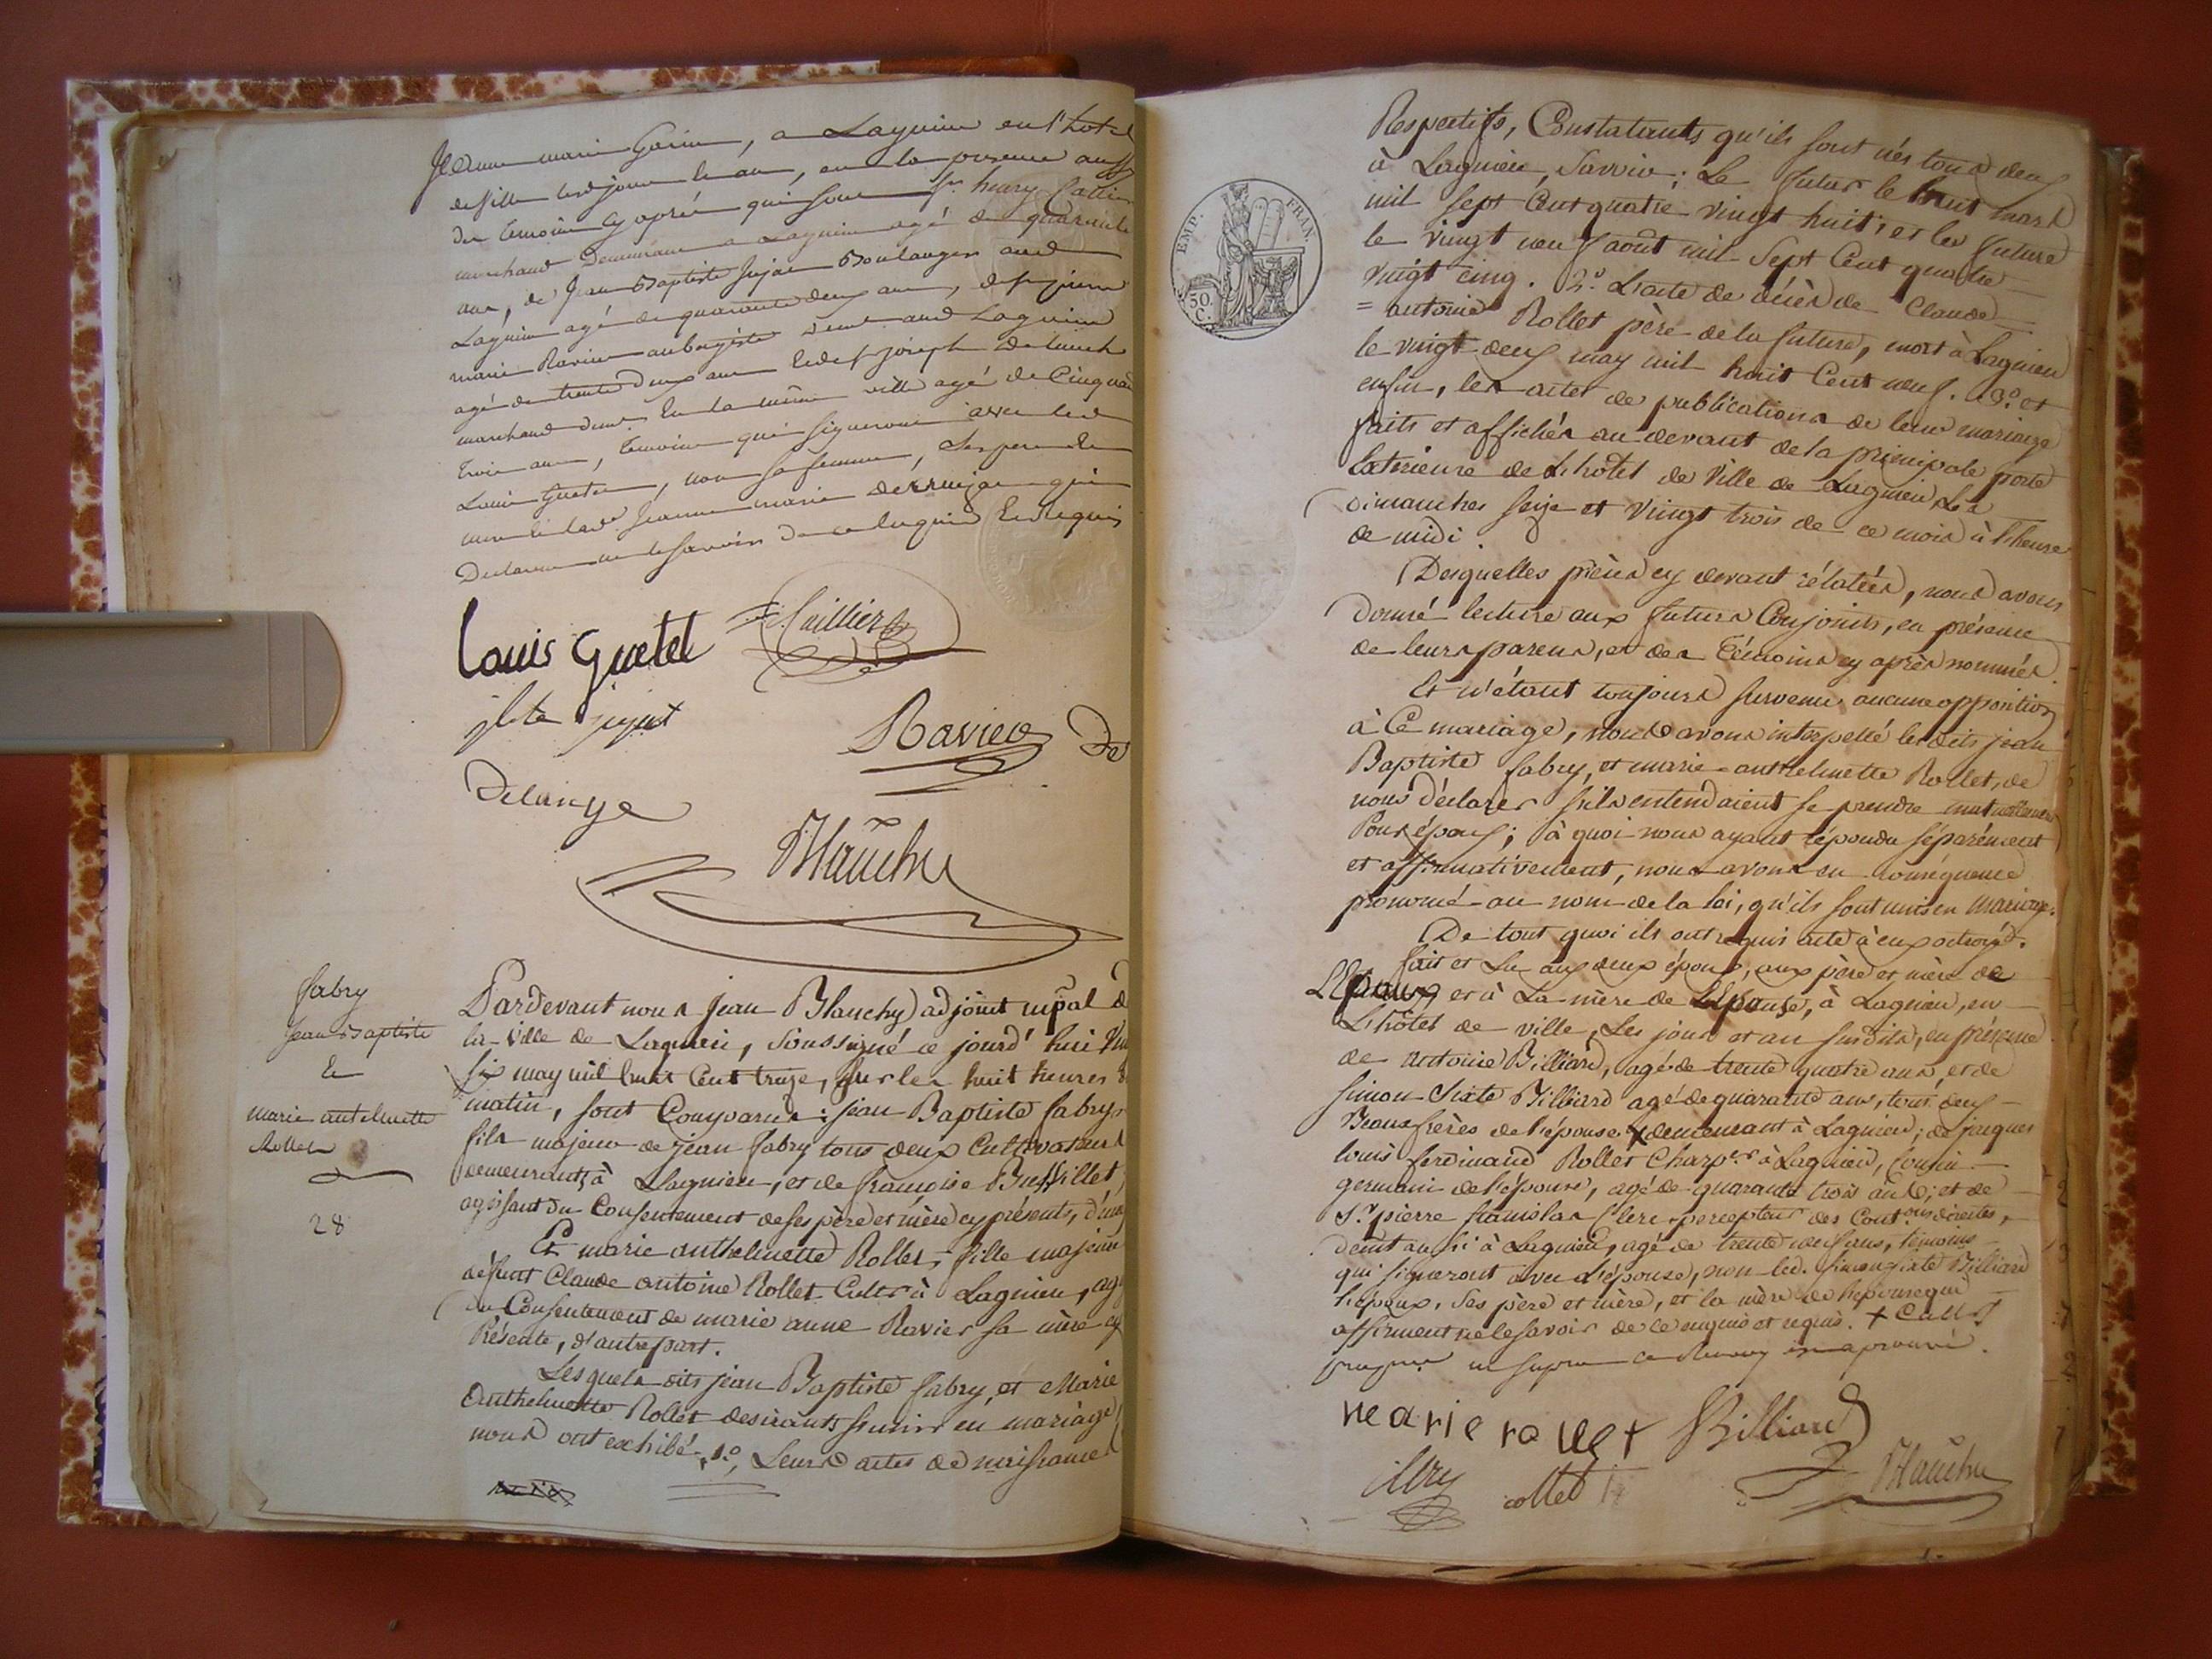 Jeanne marie Garin, a Lagnieu en l'hotel
de ville lesd jour le an, en la presence aussi
des temoins cy après qui sont sr. henry Caillier
marchand demeurant a Lagnieu agé de quarante
ans, de Jean Baptiste Jujat Boulanger aud
Lagnieu agé de quarante deux ans, de sr pierre
marie Ravier aubergiste demt aud Lagnieu
agé de trente deux ans et de sr joseph
marchand demt en la même ville agé de Cinquante
trois ans, temoins qui signeront avec led
Louis Guetet, non sa femme, ses pere et
mere et lade Jeanne marie qui
Declarent ne le savoir de ce Enquis et requis
Louis Guetet Caillier
jbte jujat
Ravier De
Delange
Blanchy
fabry
Jean Baptiste
&
marie anthelmette
Rollet
28
Pardevant nous Jean Blanchy adjoint mpal de
la Ville de Lagnieu, soussigné ce jourd'hui Vingt
six may mil huit Cent treize, sur les huit heures du
matin, sont Comparus : jean Baptiste fabry,
fils majeur de jean fabry tous deux Cultivateurs
demeurants à Lagnieu, et de françoise Buffillet,
agissant du Consentement de ses père et mère cy présents, d'une
Et marie anthelmette Rollet, fille majeure
défunt Claude antoine Rollet Cultr à Lagnieu, ag
du Consentement de marie anne Ravier sa mère cy
Présente, d'autre part.
Lesquels dits jean Baptiste fabry, et Marie
Anthelmette Rollet desirants s'unir en mariage
nous ont exhibé, 1.° Leurs actes de naissances
EMP. FRAN.
50. C.
Respectifs, Constatants qu'ils sont nés tous deux
à Lagnieu, Savoir; Le futur le huit mars
mil sept Cent quatre vingt huit; et la future
le vingt neuf août mil Sept Cent quatre
vingt cinq. 2.° L'acte de décès de Claude
= antoine Rollet père de la future, mort à Lagnieu
le vingt deux may mil huit Cent neuf. 3.° et
enfin, les actes de publications de leur mariage
faits et affichés au devant de la principale porte
Exterieure de L'hôtel de Ville de Lagnieu Les
Dimanches seize et Vingt trois de ce mois à l'heure
de midi.
Desquelles pièces cy devant rélatées, nous avons
donné lecture aux futurs Conjoints, en présence
de leurs parens, et des Témoins cy après nommés.
Et n'étant toujours survenu aucune opposition
à Ce mariage, nous avons interpellé lesdits jean
Baptiste fabry, et marie-anthelmette Rollet, de
nous déclarer s'ils entendaient se prendre mutuellement
Pour époux; à quoi nous ayant répondu séparément
et affirmativement, nous avons en conséquence
prononcé au nom de la loi, qu'ils sont unis en mariage.
De tout quoi ils ont requis acte à eux octroyé.
fait et Lu aux deux époux, aux père et mère de
L'Epoux et à La mère de L'Epouse, à Lagnieu, en
L'hôtel de ville, Les jour et an susdits, en présence
de Antoine Billiard, agé de trente quatre ans, et de
Simon Sixte Billiard agé de quarante ans, tous deux
Beaux frères de l'épouse x demeurant à Lagnieu; de jacques
louis ferdinand Rollet Charper à Lagnieu, Cousin
germain de l'épouse, agé de quarante trois ans; et de
Sr. pierre stanislas Clerc percepteur des Contons directes,
demt aussi à Lagnieu, agé de trente neuf ans, témoins
qui signeront avec L'épouse, non led. simon sixte Billiard
l'époux, ses père et mère, et la mère de l'épouse qui
affirment ne le savoir de ce enquis et requis. + Cult.rs
ut supra ce Renvoy est aprouvé.
marie rollet Billiard
Clerc rollet Blanchy